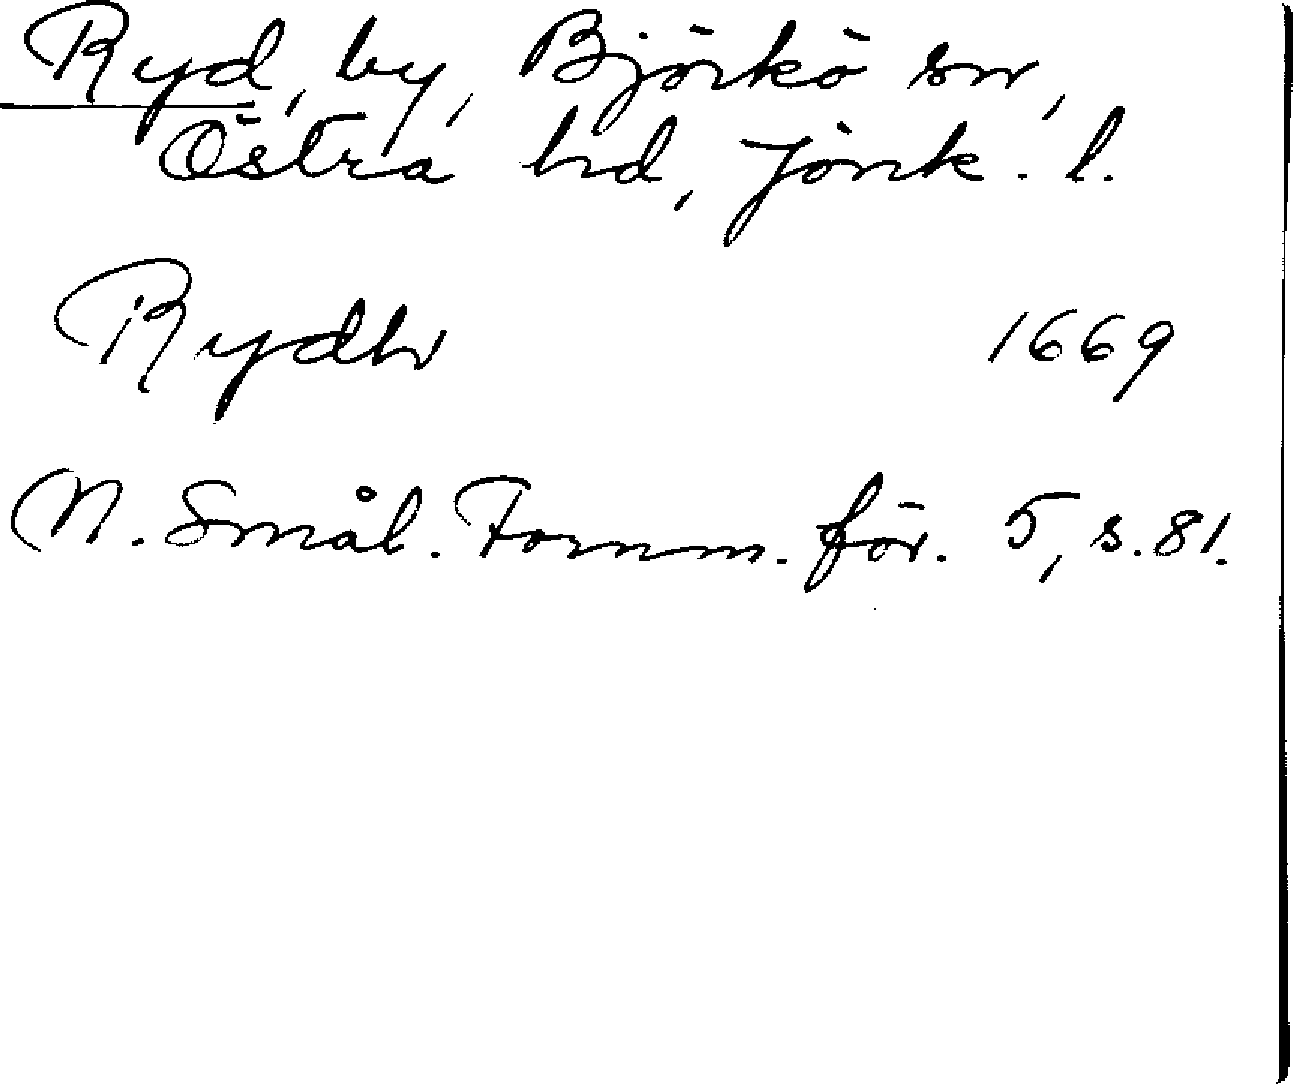 Ryd, by, Björkö sn,
Östra hd, Jönk. l.
Rydh 1669
N. Smål. Fornm. för. 5, s. 81.